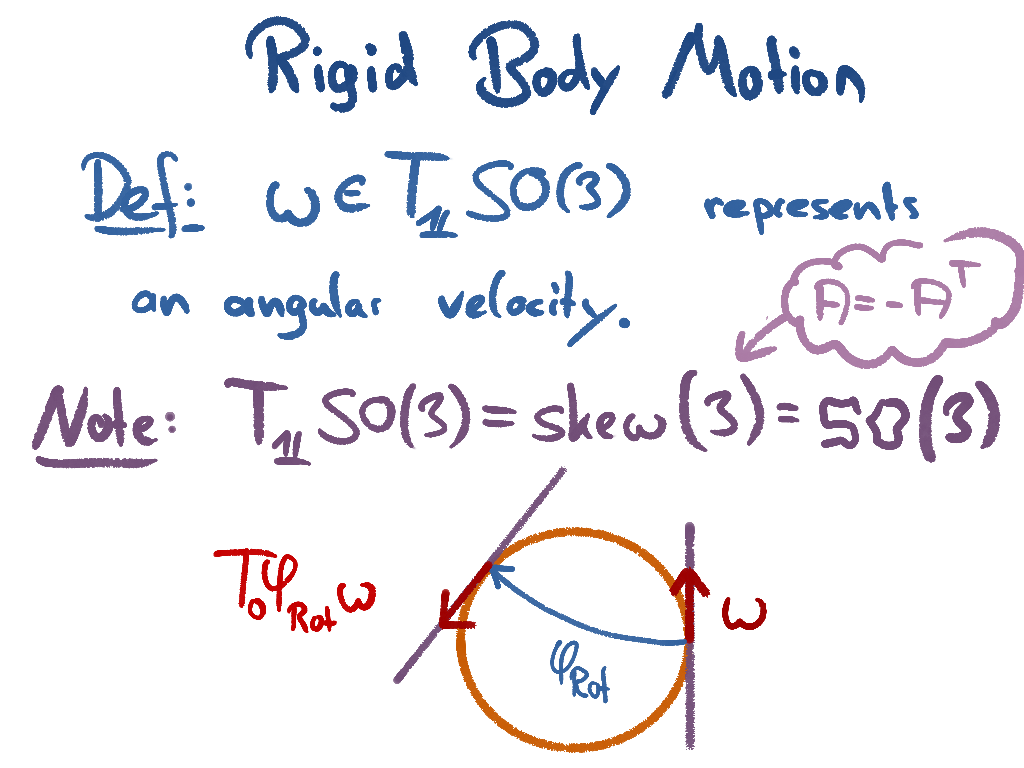 Rigid Body Motion
Def: ω ∈ T_𝟙 SO(3) represents
an angular velocity.
A = -A^T
Note: T_𝟙 SO(3) = skew(3) = 𝔰𝔬(3)
T_0 φ_Rot ω
ω
φ_Rot